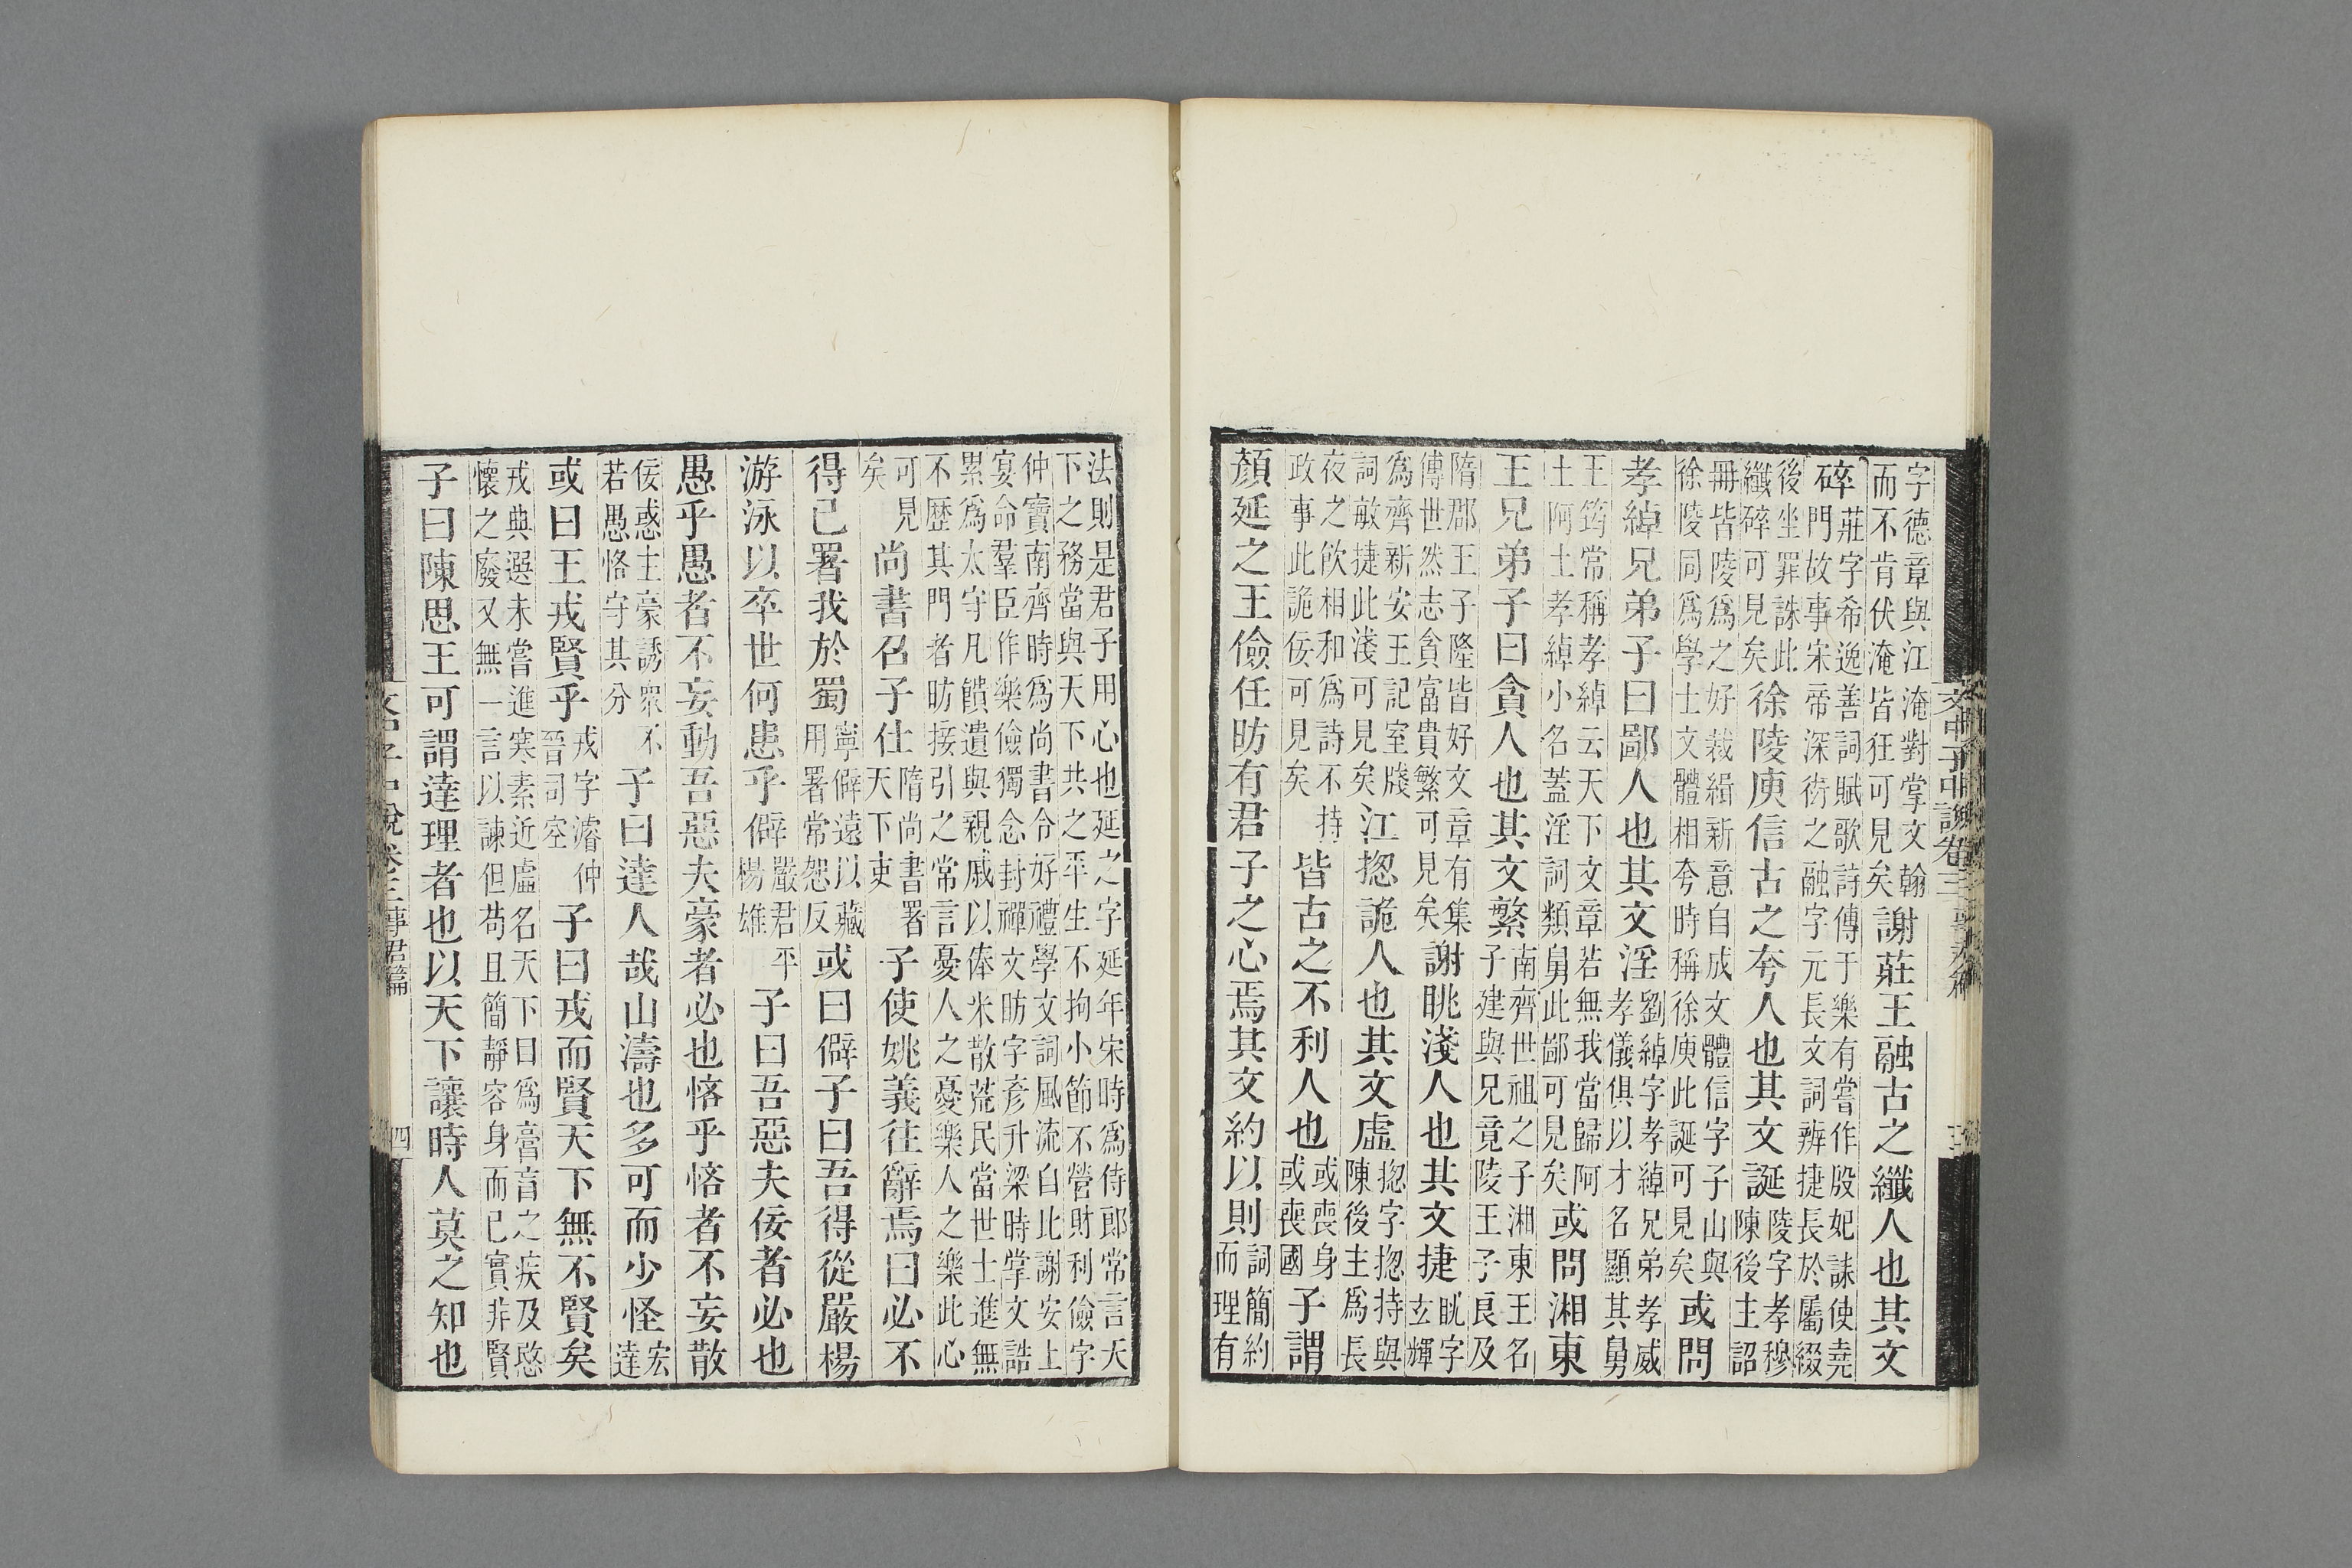 文中子中說卷三 事君篇 三
字德章與江淹對掌文翰
而不肯伏淹皆狂可見矣
謝莊王融古之纖人也其文
碎
莊字希逸善詞賦歌詩傳于樂有嘗作殷妃誄使堯
門故事宋帝深銜之融字元長文詞辨捷長於屬綴
後坐罪誅此
纖碎可見矣
徐陵庾信古之夸人也其文誕
陵字孝穆
陳後主詔
冊皆陵爲之好裁緝新意自成文體信字子山與
徐陵同爲學士文體相夸時稱徐庾此誕可見矣
或問
孝綽兄弟子曰鄙人也其文淫
劉綽字孝綽兄弟孝威
孝儀俱以才名顯其舅
王筠常稱孝綽云天下文章若無我當歸阿
土阿土孝綽小名蓋淫詞類舅此鄙可見矣
或問湘東
王兄弟子曰貪人也其文繁
南齊世祖之子湘東王名
子建與兄竟陵王子良及
隋郡王子隆皆好文章有集
傳世然志貪富貴繁可見矣
謝眺淺人也其文捷
眺字
玄輝
爲齊新安王記室牋
詞敏捷此淺可見矣
江揔詭人也其文虛
揔字揔持與
陳後主爲長
夜之飲相和爲詩不持
政事此詭佞可見矣
皆古之不利人也
或喪身
或喪國
子謂
顏延之王儉任昉有君子之心焉其文約以則
詞簡約
而理有
法則是君子用心也延之字延年宋時爲侍郎常言天
下之務當與天下共之平生不拘小節不營財利儉字
仲寶南齊時爲尚書令好禮學文詞風流自比謝安上
宴命羣臣作樂儉獨念封禪文昉字彥升梁時掌文誥
累爲太守凡饋遺與親戚以俸米散荒民當世士進無
不歷其門者昉接引之常言憂人之憂樂人之樂此心
可見
矣
尚書召子仕
隋尚書署
天下吏
子使姚義往辭焉曰必不
得已署我於蜀
寧僻遠以藏
用署常恕反
或曰僻子曰吾得從嚴楊
游泳以卒世何患乎僻
嚴君平
楊雄
子曰吾惡夫佞者必也
愚乎愚者不妄動吾惡夫豪者必也恡乎恡者不妄散
佞惑主豪誘衆不
若愚恡守其分
子曰達人哉山濤也多可而少怪
宏
達
或曰王戎賢乎
戎字濬仲
晉司空
子曰戎而賢天下無不賢矣
戎典選未嘗進寒素近虛名天下目爲膏肓之疾及愍
懷之廢又無一言以諫但苟且簡靜容身而已實非賢
子曰陳思王可謂達理者也以天下讓時人莫之知也
文中子中說卷三 事君篇 四